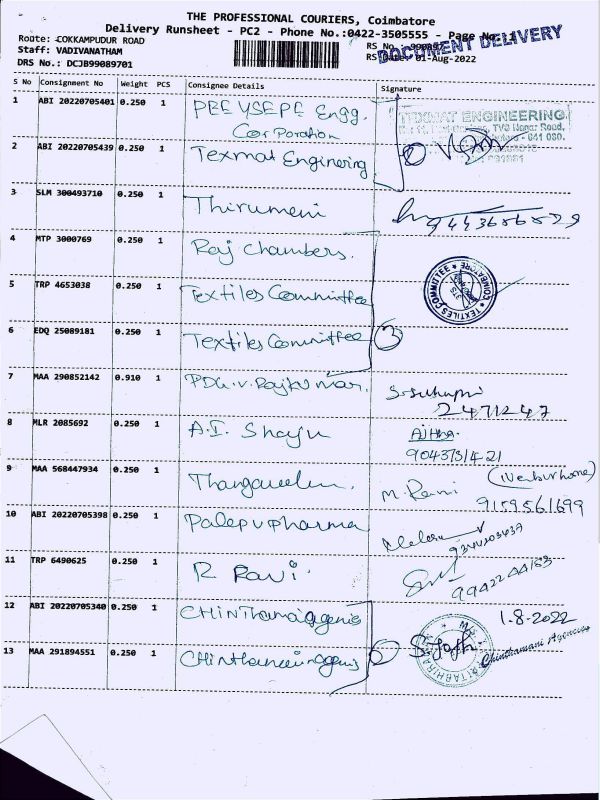 THE PROFESSIONAL COURIERS, Coimbatore
Delivery Runsheet - PC2 - Phone No.:0422-3505555 - Page No. 1
Route: COKKAMPUDUR ROAD
Staff: VADIVANATHAM
DRS No.: DCJB99089701
RS No.
RS Date: 01-Aug-2022
DOCUMENT DELIVERY
S No Consignment No Weight PCS Consignee Details Signature
1 ABI 20220705401 0.250 1 PEE YSEPE Engg.
Corporation
TEXMAT ENGINEERING
TVS Nagar Road,
641 030.
2 ABI 20220705439 0.250 1 Texmat Enginering
3 SLM 300493710 0.250 1 Thirumeni
9443656529
4 MTP 3000769 0.250 1 Raj Chambers.
TEXTILES COMMITTEE ★ COIMBATORE ★
5 TRP 4653038 0.250 1 Textiles Committee
6 EDQ 25089181 0.250 1 Textiles Committee
3
7 MAA 290852142 0.910 1 PDG.V.Rajkumar.
2471247
8 MLR 2085692 0.250 1 A.I. Shaju
Ajitha.
9 MAA 568447934 0.250 1 Thangavelu.
M. Rani
9159561699
10 ABI 20220705398 0.250 1 Palepu pharma
11 TRP 6490625 0.250 1 R Ravi.
9942244163
12 ABI 20220705340 0.250 1
1.8.2022
13 MAA 291894551 0.250 1
Chinthamani Agencies